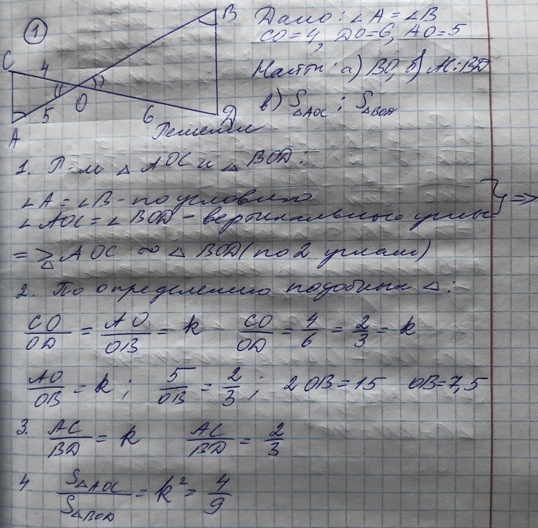 1
B
Дано: ∠A = ∠B
CO = 4, DO = 6, AO = 5
C
4
Найти: а) BO, б) AC:BD
O
в) S△AOC : S△BOD
5
6
D
A
Решение
1. Р-м △AOC и △BOD:
∠A = ∠B - по условию
∠AOC = ∠BOD - вертикальные углы } =>
=> △AOC ∞ △BOD (по 2 углам)
2. По определению подобных △:
CO/OD = AO/OB = k   CO/OD = 4/6 = 2/3 = k
AO/OB = k;   5/OB = 2/3;   2OB = 15   OB = 7,5
3. AC/BD = k   AC/BD = 2/3
4. S△AOC/S△BOD = k² = 4/9